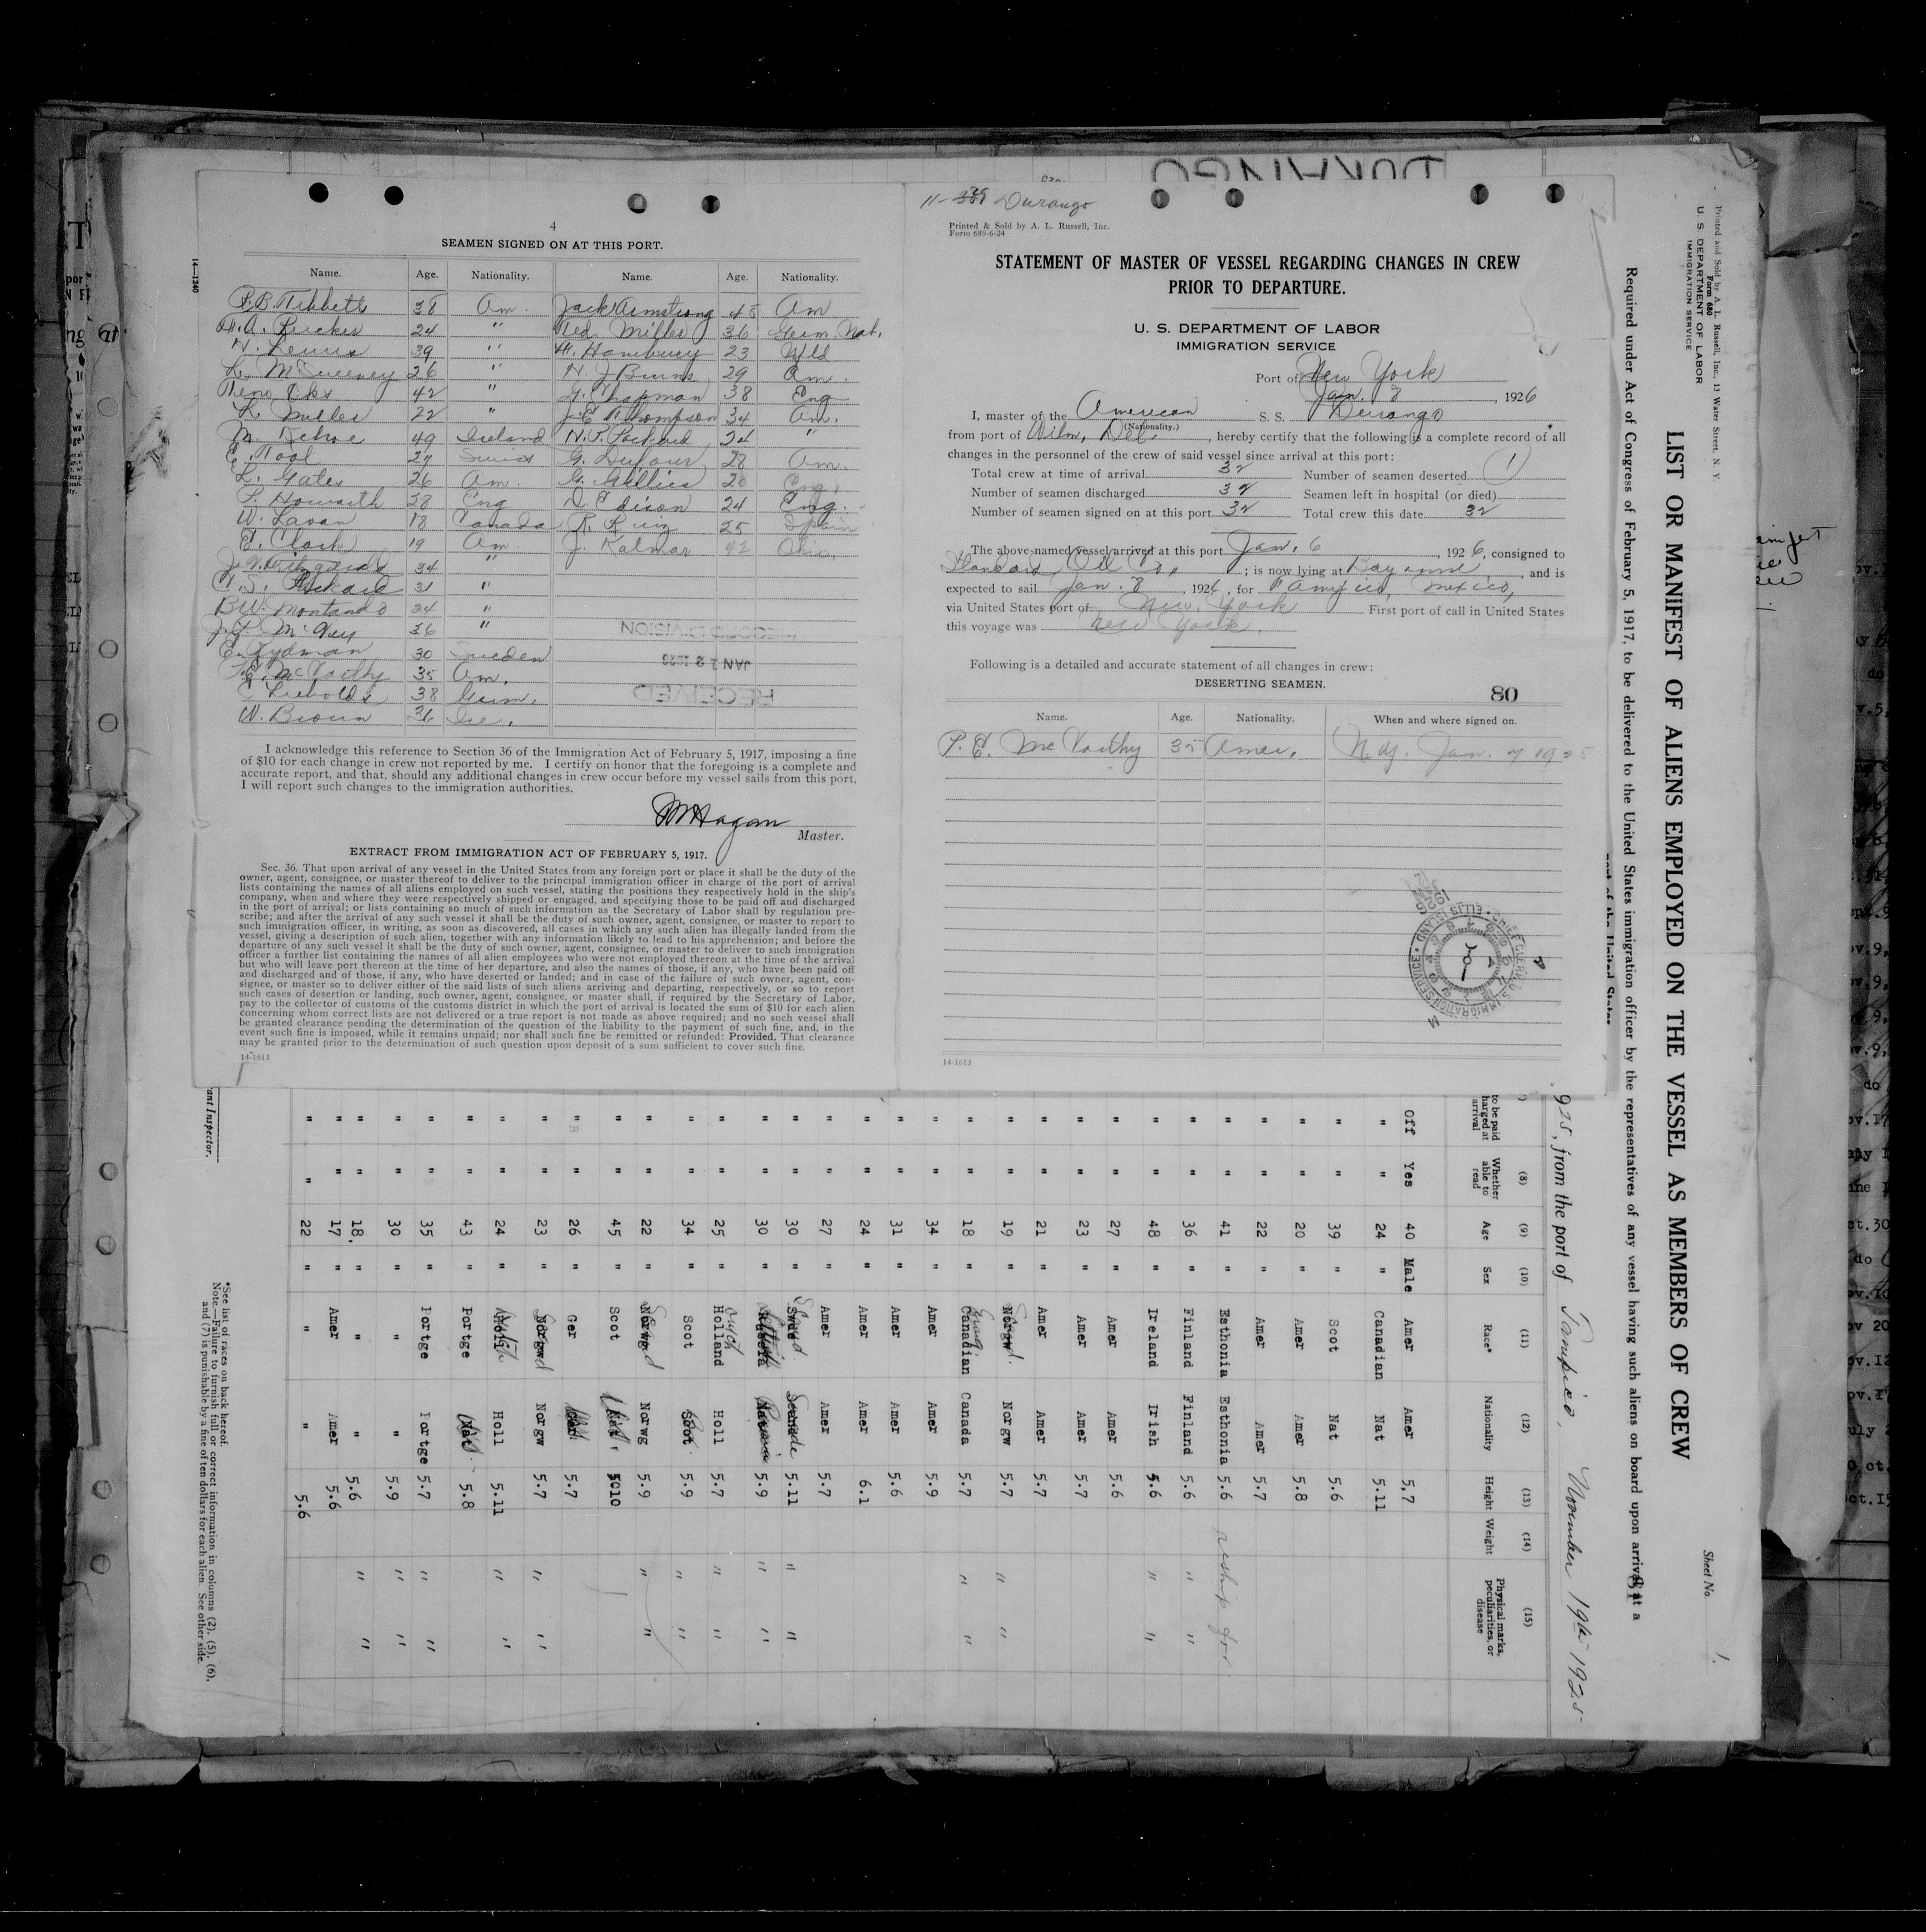 4
SEAMEN SIGNED ON AT THIS PORT.
Name. Age. Nationality. Name. Age. Nationality.
P.B. Tibbetts 38 Am. Jack Armstrong 48 Am
H.A. Rucker 24 " Ted Miller 36 Germ. Nat.
N. Lewis 39 " H. Hambury 23 Nfld
L. McSweeney 26 " N. J. Burns 29 Am.
42 " G. Chapman 38 Eng
L. Miller 22 " J.E. Thompson 34 Am.
M. Kehoe 49 Ireland N.P. Packard 24 "
E. Tool 27 Swiss G. Dufour 28 Am.
L. Gates 26 Am. G. Gillies 20 Eng.
P. Howarth 28 Eng D. Edison 24 Eng.
W. Lavan 18 Canada R. Ruiz 25 Spain
E. Clark 19 Am. J. Kalmar 42
J. Fitzgerald 34 "
31 "
B.W. Montando 24 "
J.F. McVey 36 "
E. Rydman 30 Sweden
P.E. McCarthy 35 Am.
C. Liebolds 38 Germ.
W. Brown 36 Ire.
RECORD DIVISION
JAN 12 1926
RECEIVED
I acknowledge this reference to Section 36 of the Immigration Act of February 5, 1917, imposing a fine
of $10 for each change in crew not reported by me. I certify on honor that the foregoing is a complete and
accurate report, and that, should any additional changes in crew occur before my vessel sails from this port,
I will report such changes to the immigration authorities.
Hagan
Master.
EXTRACT FROM IMMIGRATION ACT OF FEBRUARY 5, 1917.
Sec. 36. That upon arrival of any vessel in the United States from any foreign port or place it shall be the duty of the
owner, agent, consignee, or master thereof to deliver to the principal immigration officer in charge of the port of arrival
lists containing the names of all aliens employed on such vessel, stating the positions they respectively hold in the ship's
company, when and where they were respectively shipped or engaged, and specifying those to be paid off and discharged
in the port of arrival; or lists containing so much of such information as the Secretary of Labor shall by regulation pre-
scribe; and after the arrival of any such vessel it shall be the duty of such owner, agent, consignee, or master to report to
such immigration officer, in writing, as soon as discovered, all cases in which any such alien has illegally landed from the
vessel, giving a description of such alien, together with any information likely to lead to his apprehension; and before the
departure of any such vessel it shall be the duty of such owner, agent, consignee, or master to deliver to such immigration
officer a further list containing the names of all alien employees who were not employed thereon at the time of the arrival
but who will leave port thereon at the time of her departure, and also the names of those, if any, who have been paid off
and discharged and of those, if any, who have deserted or landed; and in case of the failure of such owner, agent, con-
signee, or master so to deliver either of the said lists of such aliens arriving and departing, respectively, or so to report
such cases of desertion or landing, such owner, agent, consignee, or master, shall, if required by the Secretary of Labor,
pay to the collector of customs of the customs district in which the port of arrival is located the sum of $10 for each alien
concerning whom correct lists are not delivered or a true report is not made as above required; and no such vessel shall
be granted clearance pending the determination of the question of the liability to the payment of such fine, and, in the
event such fine is imposed, while it remains unpaid; nor shall such fine be remitted or refunded: Provided, That clearance
may be granted prior to the determination of such question upon deposit of a sum sufficient to cover such fine.
14-1613
14-1240
DURANGO
Durango
Printed & Sold by A. L. Russell, Inc.
Form 689-6-24
STATEMENT OF MASTER OF VESSEL REGARDING CHANGES IN CREW
PRIOR TO DEPARTURE.
U. S. DEPARTMENT OF LABOR
IMMIGRATION SERVICE
Port of New York
Jan. 8, 1926
I, master of the American S. S. Durango
(Nationality.)
from port of Wilm, Del., hereby certify that the following is a complete record of all
changes in the personnel of the crew of said vessel since arrival at this port:
Total crew at time of arrival 32 Number of seamen deserted 1
Number of seamen discharged 32 Seamen left in hospital (or died)
Number of seamen signed on at this port 32 Total crew this date 32
The above-named vessel arrived at this port Jan. 6, 1926, consigned to
Standard Oil Co.; is now lying at Bayonne, and is
expected to sail Jan. 8, 1926, for Tampico, Mexico,
via United States port of New York First port of call in United States
this voyage was New York.
Following is a detailed and accurate statement of all changes in crew:
DESERTING SEAMEN.
80
Name. Age. Nationality. When and where signed on.
P. E. McCarthy 35 Amer. N.Y. Jan. 7 1925
CHIEF CLERK U.S. IMMIGRATION SERVICE • ELLIS ISLAND
1926
14-1613
Printed and Sold by A. L. Russell, Inc., 13 Water Street, N. Y.
Form 680
U. S. DEPARTMENT OF LABOR
IMMIGRATION SERVICE
Sheet No. 1.
LIST OR MANIFEST OF ALIENS EMPLOYED ON THE VESSEL AS MEMBERS OF CREW
Required under Act of Congress of February 5, 1917, to be delivered to the United States immigration officer by the representatives of any vessel having such aliens on board upon arrival at a
port of the United States
925, from the port of Tampico, November 19th 1925
(8) (9) (10) (11) (12) (13) (14) (15)
to be paid
harged at
arrival
Whether able to read Age Sex Race* Nationality Height Weight Physical marks, peculiarities, or disease
Off Yes 40 Male Amer Amer 5.7
" " 24 " Canadian Nat 5.11
" " 39 " Scot Nat 5.6
" " 20 " Amer Amer 5.8
" " 22 " Amer Amer 5.7
" " 41 " Esthonia Esthonia 5.6 reship for
" " 36 " Finland Finland 5.6 " "
" " 48 " Ireland Irish 5.6 " "
" " 27 " Amer Amer 5.6
" " 23 " Amer Amer 5.7
" " 21 " Amer Amer 5.7
" " 19 " Norgw Scand. Norgw 5.7 " "
" " 18 " Canadian Canada 5.7 " "
" " 34 " Amer Amer 5.9
" " 31 " Amer Amer 5.6
" " 24 " Amer Amer 6.1
" " 27 " Amer Amer 5.7
" " 30 " Swede Scand 5.11 " "
" " 30 " 5.9 " "
" " 25 " Holland Dutch Holl 5.7 " "
" " 34 " Scot Scot 5.9 " "
" " 22 " Norwg Scand Norwg 5.9 " "
" " 45 " Scot 5010
" " 26 " Ger 5.7
" " 23 " Norgw Scand Norgw 5.7 " "
" " 24 " Holl Dutch Holl 5.11 " "
" " 43 " Portge Nat 5.8
" " 35 " Portge Portge 5.7 " "
" " 30 " " " 5.9 " "
" " 18 " " " 5.6 " "
" " 17 " Amer Amer 5.6
" " 22 " " " 5.6
*See list of races on back hereof.
Note.—Failure to furnish full or correct information in columns (2), (5), (6),
and (7) is punishable by a fine of ten dollars for each alien. See other side.
ant Inspector.